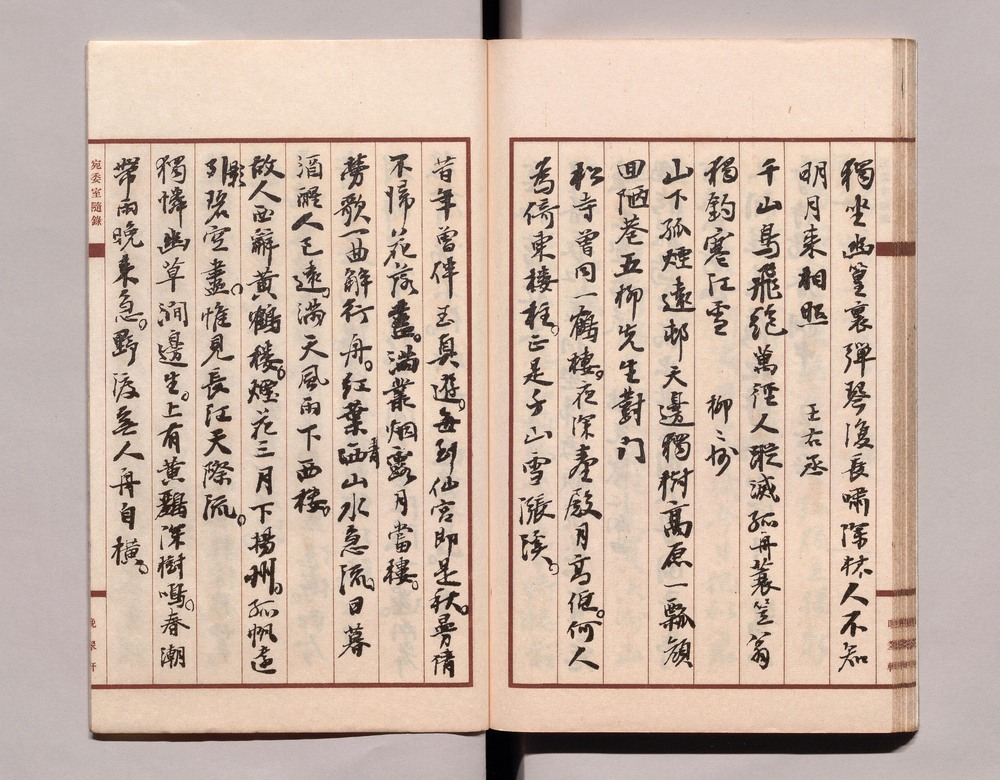 獨坐幽篁裏彈琴復長嘯深林人不知
明月来相照　王右丞
千山鳥飛絶萬徑人蹤滅孤舟蓑笠翁
獨釣寒江雪　柳ミ州
山下孤煙遠邨天邊獨樹高原一瓢顔
回陋巷五柳先生對门
松寺曾同一鶴棲。夜深臺殿月高低。何人
為倚東樓柱。正是千山雪漲溪。
昔年曾伴玉真遊。每到仙宫即是秋。曼倩
不歸花落盡。滿叢烟露月當樓。
勞歌一曲解行舟。紅葉青山水急流。日暮
酒醒人已遠。滿天風雨下西樓。
故人西辭黃鶴樓。煙花三月下揚州。孤帆遠
影碧空盡。惟見長江天際流。
獨憐幽草澗邊生。上有黃鸝深樹鳴。春潮
帶雨晚来急。野渡無人舟自橫。
宛委室隨錄
晚翠軒